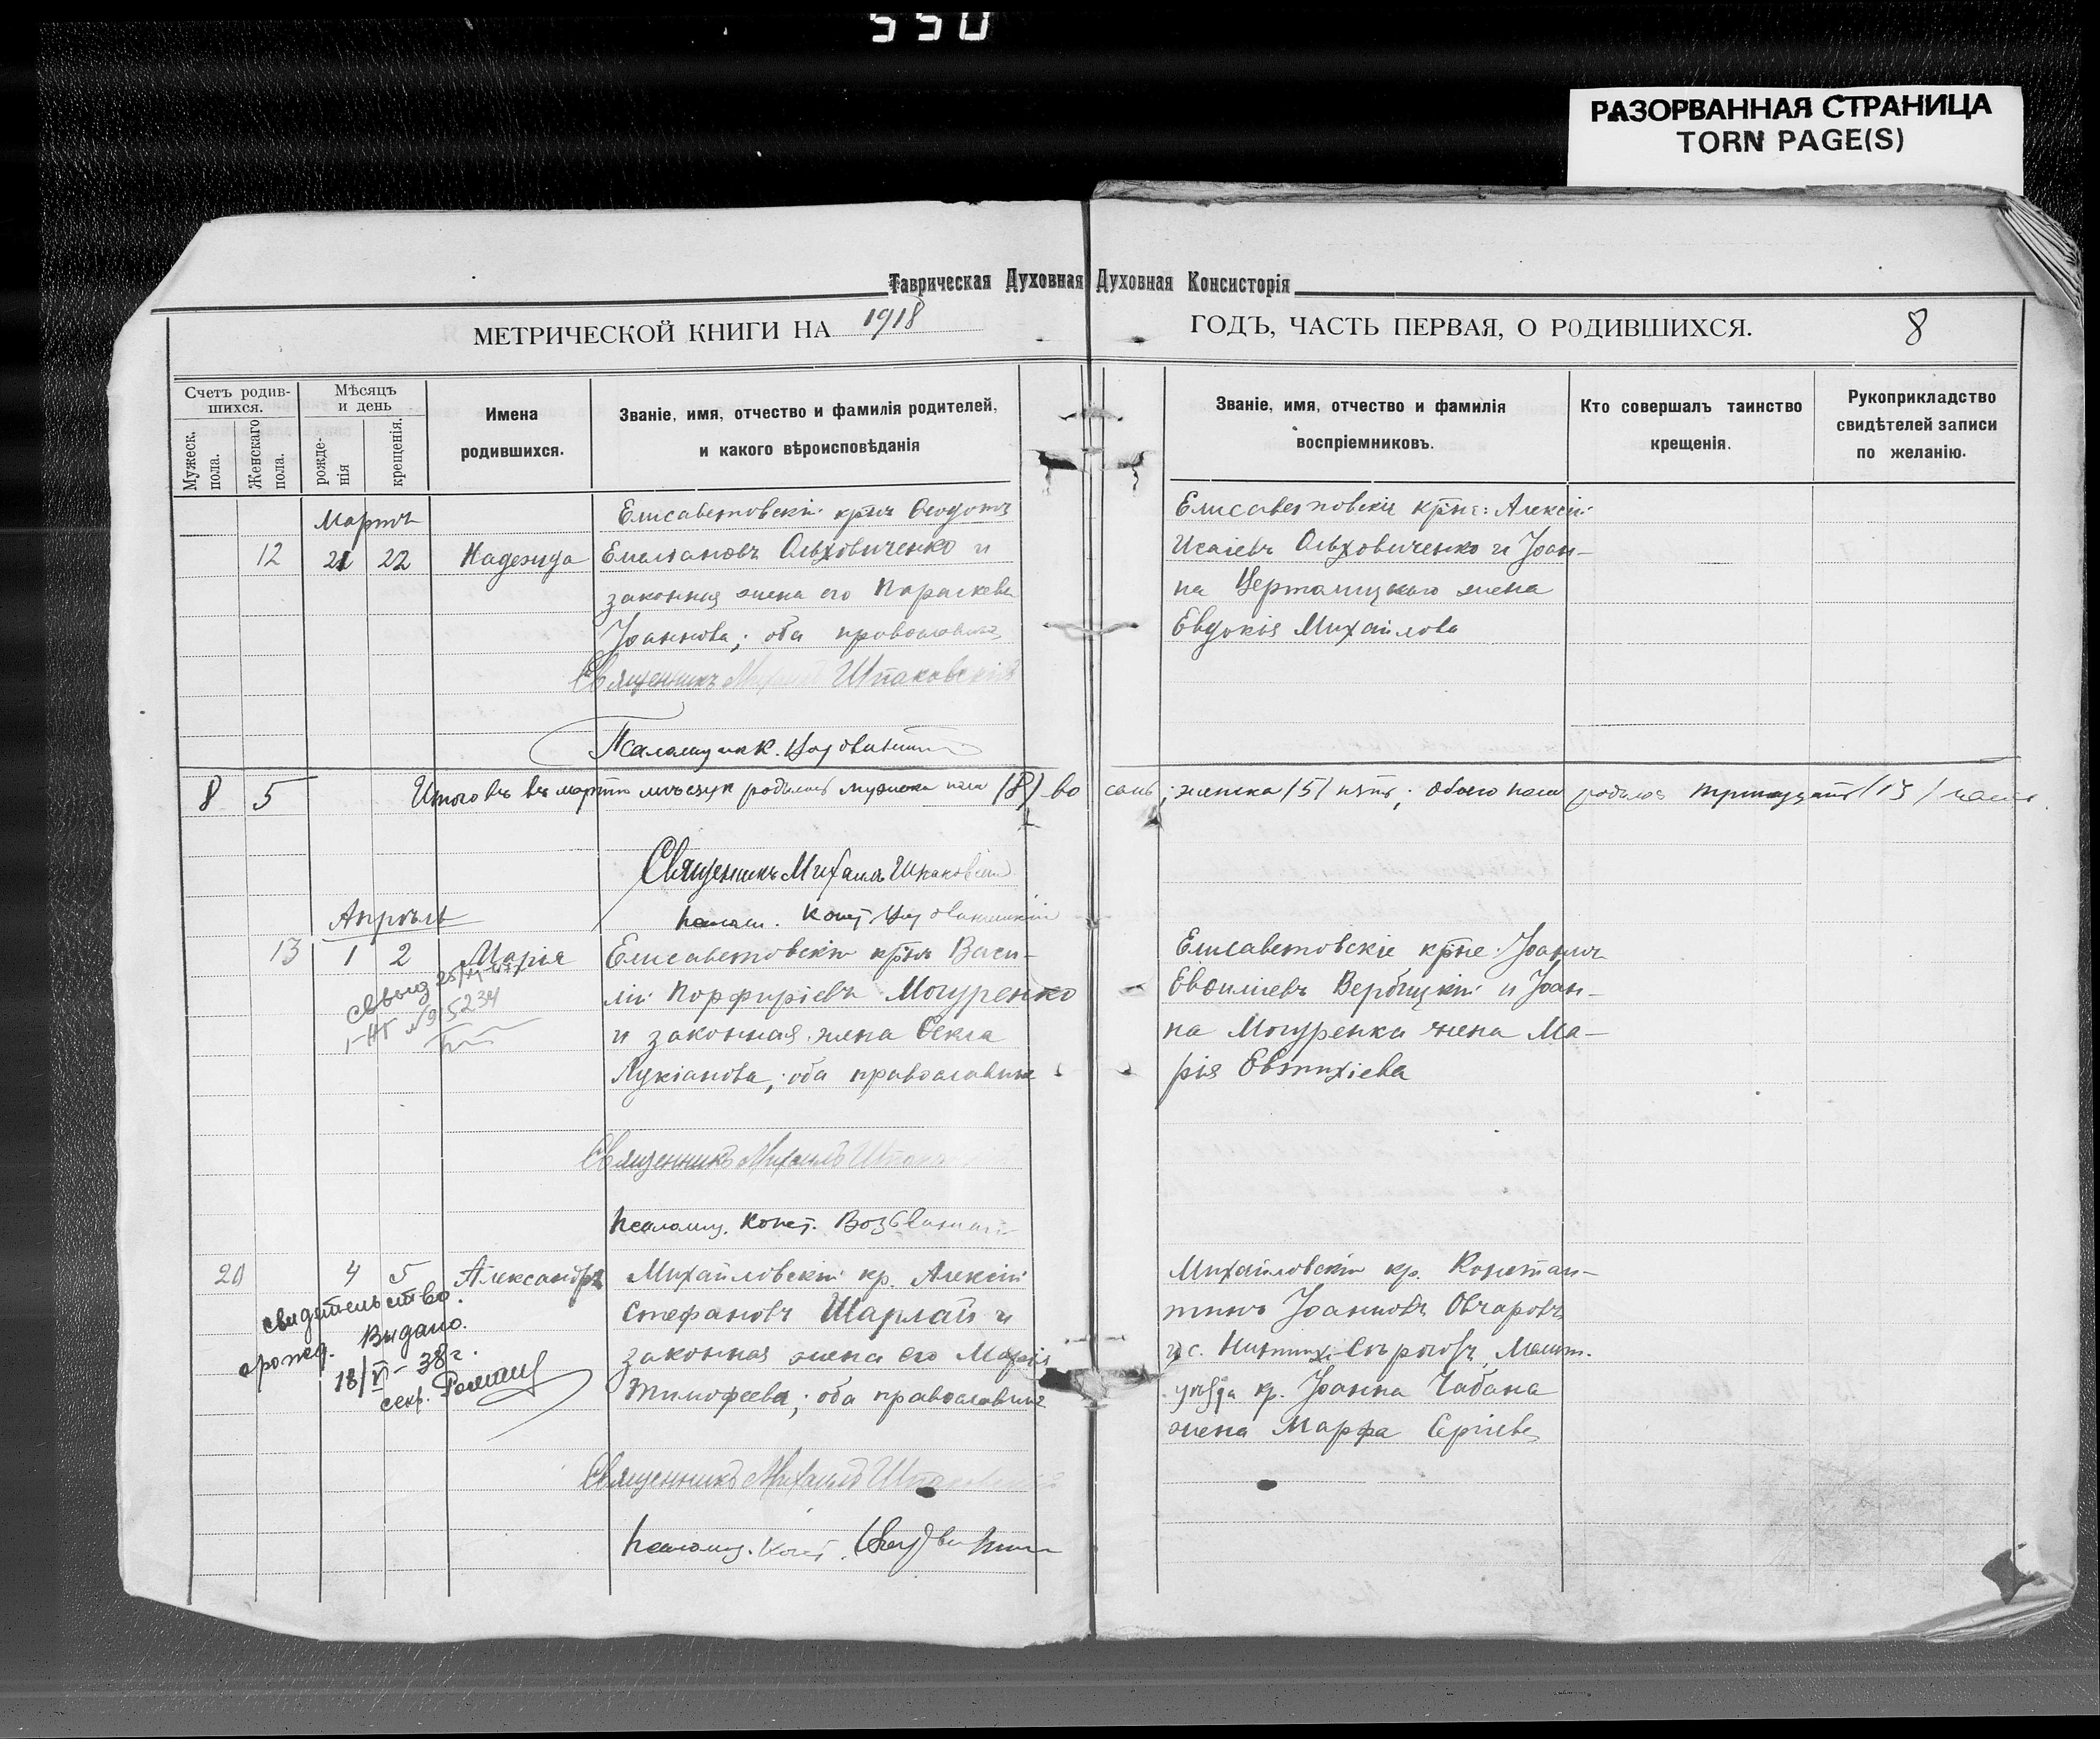 550
РАЗОРВАННАЯ СТРАНИЦА
TORN PAGE(S)
Таврическая Духовная Духовная Консисторія
МЕТРИЧЕСКОЙ КНИГИ НА 1918 ГОДЪ, ЧАСТЬ ПЕРВАЯ, О РОДИВШИХСЯ. 8
Счетъ родив-
шихся.
Мужеск.
пола.
Женскаго
пола.
Мѣсяцъ
и день
рожде-
нія
крещенія.
Имена
родившихся.
Званіе, имя, отчество и фамилія родителей,
и какого вѣроисповѣданія
Званіе, имя, отчество и фамилія
воспріемниковъ.
Кто совершалъ таинство
крещенія.
Рукоприкладство
свидѣтелей записи
по желанію.
Мартъ
12 21 22 Надежда
Елисаветовскій кр̅нъ Ѳеодотъ
Емеліановъ Ольховиченко и
законная жена его Параскева
Іоаннова; оба православные
Священникъ Михаилъ Шпаковскій
Псаломщикъ К.
Елисаветовскіе кр̅не: Алексій
Исаіевъ Ольховиченко и Іоан-
на жена
Евдокія Михайлова
8 5 Итого въ мартѣ мѣсяцѣ родилось мужска пола (8) во семь; женска (5) пять; обоего пола родилось тринадцать (13)
Священникъ Михаилъ Шпаковскій
псалом. Конст.
Апрѣль
13 1 2 Марія
25/VI-
1-НГ №915234
Елисаветовскій кр̅нъ Васи-
лій Порфиріевъ Могуренко
и законная жена Ѳекла
Лукіанова; оба православные
Священникъ Михаилъ Шпаковскій
Псаломщ. Конст. Воздвиженскій
Елисаветовскіе кр̅не: Іоаннъ
Вербицкій и Іоан-
на Могуренка жена Ма-
рія Евтихіева
20 4 5 Александръ
свидетельство
о рожд. Выдано.
18/VI - 38 г.
секр.
Михайловскій кр. Алексій
Стефановъ Шарлай и
законная жена его Марія
Тимофеева; оба православные
Священникъ Михаилъ Шпаковскій
Псаломщ. Конст.
Михайловскій кр. Констан-
тинъ Іоанновъ Овчаровъ
и с. Нижнихъ Сѣрогозъ Мелит.
уѣзда кр. Іоанна Чабана
жена Марфа Сергіева